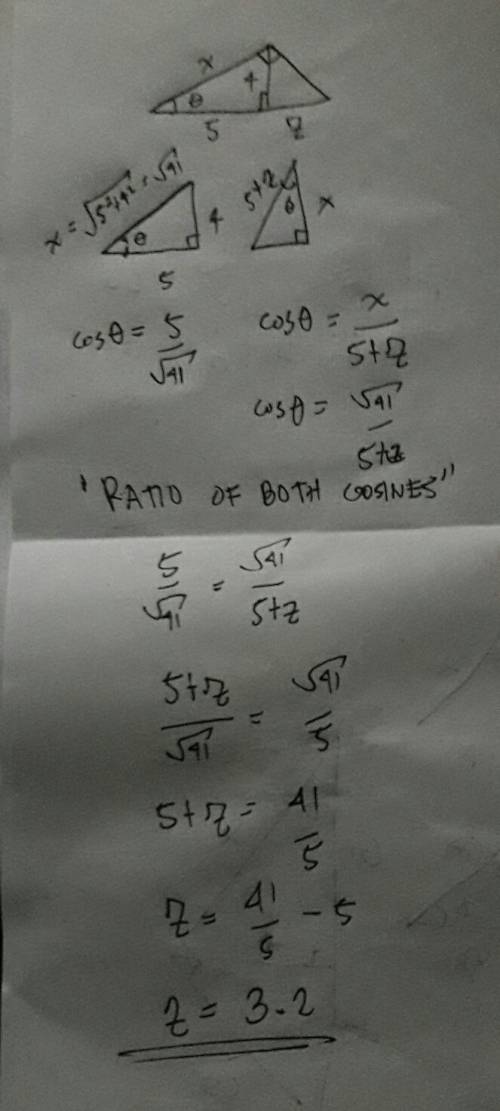 x
θ 4
5 z
x = √5²+4² = √41
θ 4
5
5+z θ x
cosθ = 5/√41
cosθ = x/5+z
cosθ = √41/5+z
"RATIO OF BOTH COSINES"
5/√41 = √41/5+z
5+z/√41 = √41/5
5+z = 41/5
z = 41/5 - 5
z = 3.2